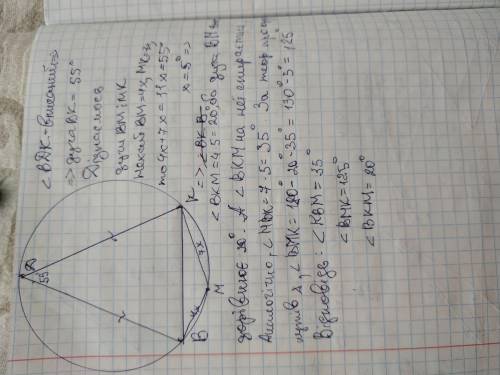 ∠BDK - вписаний =>
=> дуга BK = 55°
Дізнаємося
дуги BM і MK
нехай BM = 4x, MK = 7x,
то 4x+7x = 11x = 55°
x = 5° =>
=>
∠BKM = 4·5 = 20°, бо дуга BM
дорівнює 20°. А ∠BKM на неї опирається
Аналогічно, ∠MBK = 7·5 = 35°. За теор про
кутів Δ, ∠BMK = 180-20°-35° = 130°-5° = 125°
Відповідь: ∠KBM = 35°
∠BMK = 125°
∠BKM = 20°
D
55
K
7x
M
4x
B